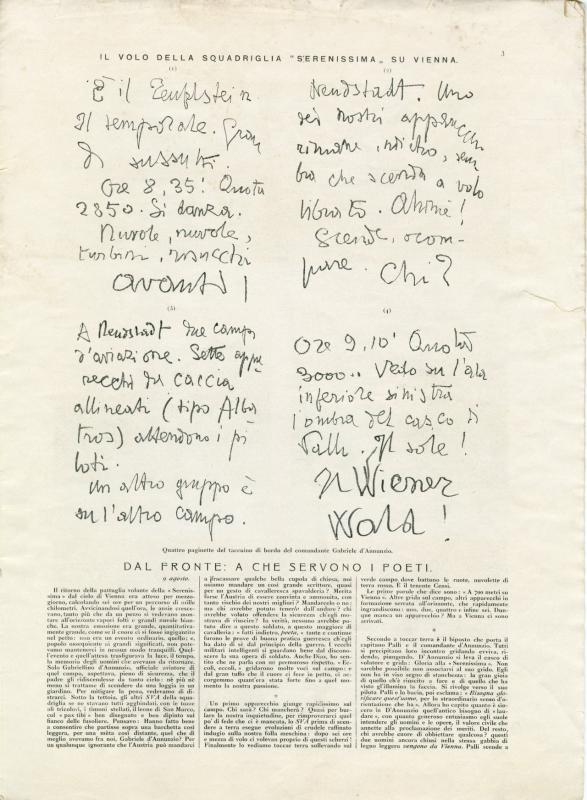 IL VOLO DELLA SQUADRIGLIA "SERENISSIMA„ SU VIENNA.
3
(1)
È il
Il temporale. Gran
di sussulti.
Ore 8,35! Quota
2850. Si danza.
Nuvole, nuvole,
turbini, mucchi
avanti!
(2)
Neustadt. Uno
dei nostri apparecchi
rimane indietro, sem
bra che scenda a volo
librato. Ahimè!
Scende, scom-
pare. Chi?
(3)
A Neustadt due campi
d'aviazione. Sette appa
recchi da caccia
allineati (tipo Alba
tros) attendono i pi
loti.
Un altro gruppo è
su l'altro campo.
(4)
Ore 9,10' Quota
3000.. Vedo su l'ala
inferiore sinistra
l'ombra del casco di
Palli. Il sole!
Il Wiener
Wald!
Quattro paginette del taccuino di bordo del comandante Gabriele d'Annunzio.
DAL FRONTE: A CHE SERVONO I POETI.
9 agosto.
Il ritorno della pattuglia volante della « Serenis-
sima » dal cielo di Vienna era atteso per mezzo-
giorno, calcolando sei ore per un percorso di mille
chilometri. Avvicinandosi quell'ora, le ansie cresce-
vano, tanto più che da un pezzo si vedevano mon-
tare all'orizzonte vapori folti e grandi nuvole bian-
che. La nostra emozione era grande, quantitativa-
mente grande, come se il cuore ci si fosse ingigantito
nel petto: non era un evento ordinario, quello; e,
popolo consapevole sì grandi significati, non pote-
vamo mantenerci in nesuno modo tranquilli. Quel-
l'evento e quell'attesa trasfigurava la luce, il tempo,
la memoria degli uomini che avevamo da ritornare.
Solo Gabriellino d'Annunzio, ufficiale aviatore di
quel campo, aspettava, pieno di sicurezza, che il
padre gli ridiscendesse da tanto cielo: nè più nè
meno si trattasse di scendere da una loggia in un
giardino. Per mitigare la pena, vedevamo di di-
strarci. Sotto la tettoia, gli altri SVA della squa-
driglia se ne stavano tutti agghindati, con le tozze
ali tricolori, i timoni stellati, il leone di San Marco,
col « pax tibi » ben disegnato e ben dipinto sul
fianco delle fusoliere. Pensavo: Hanno fatto bene
a consentire che partisse sopra una barchetta così
leggera, per una mèta così distante, quel che di
meglio avevamo fra noi, Gabriele d'Annunzio? Per
un qualunque ignorante che l'Austria può mandarci
a fracassare qualche bella cupola di chiesa, noi
osiamo mandare un così grande scrittore, quasi
per un gesto di cavalleresca spavalderia? Merita
forse l'Austria di essere convinta e ammonita, con
tanto rischio dei nostri migliori? Mandarcelo o no:
ma chi avrebbe potuto tenerlo dall'andare? chi
avrebbe potuto offendere la sicurezza ch'egli mo-
strava di riuscire? In verità, nessuno avrebbe po-
tuto dire a questo soldato, a questo maggiore di
cavalleria: « fatti indietro, poeta, » tante e continue
furono le prove di buona pratica guerresca ch'egli
ci diede sin dal principio della guerra. I vecchi
militari intelligenti si guardano bene dal discono-
scere la sua opera di soldato. Anche Diaz, ho sen-
tito che ne parla con un premuroso rispetto. « Ec-
coli, eccoli, » gridarono molte voci sul campo: e
dal gran tuffo che il cuore ci fece in petto, ci ac-
corgemmo quant'era stata forte fino a quel mo-
mento la nostra passione.
Un primo apparecchio giunge rapidissimo sul
campo. Chi sarà? Chi mancherà? Quasi per bur-
lare la nostra inquietudine, per rimproverarci quel
po' di fede che ci è mancata, lo SVA prima di scen-
dere traccia nuove evoluzioni di crudele raffinato
indugio sulla nostra folla meschina: dopo sei ore
e mezza di volo ci volevan proprio di questi scherzi!
Finalmente lo vediamo toccar terra sollevando sul
verde campo dove battono le ruote, nuvolette di
terra rossa. È il tenente Censi.
Le prime parole che dice sono: « A 700 metri su
Vienna ». Altre grida sul campo, altri apparecchi in
formazione serrata all'orizzonte, che rapidamente
ingrandiscono: uno, due, quattro e infine sei. Dun-
que manca un apparecchio? Ma a Vienna ci sono
arrivati.
Secondo a toccar terra è il biposto che porta il
capitano Palli e il comandante D'Annunzio. Tutti
si precipitano loro incontro gridando evviva, ri-
dendo, piangendo. D'Annunzio si leva il casco di
volatore e grida: Gloria alla « Serenissima ». Non
sarebbe possibile non associarsi al suo grido. Egli
non ha in viso segno di stanchezza: la gran gioia
di quello ch'è riuscito a fare e di quello che ha
visto gl'illumina la faccia. Si rivolge verso il suo
pilota Palli e lo abbraccia, poi esclama: «
». Allora ho capito quanto è sin-
cero in D'Annunzio quell'antico bisogno di « lau-
dare », con quanto generoso entusiasmo egli suole
intendere gli uomini e le opere, il valore civile che
annette alla proclamazione dei meriti. Del resto,
chi avrebbe cuore di obbiettare qualcosa? questi
due uomini ancora chiusi nella stessa gabbia di
legno leggero vengono da Vienna. Palli scende a